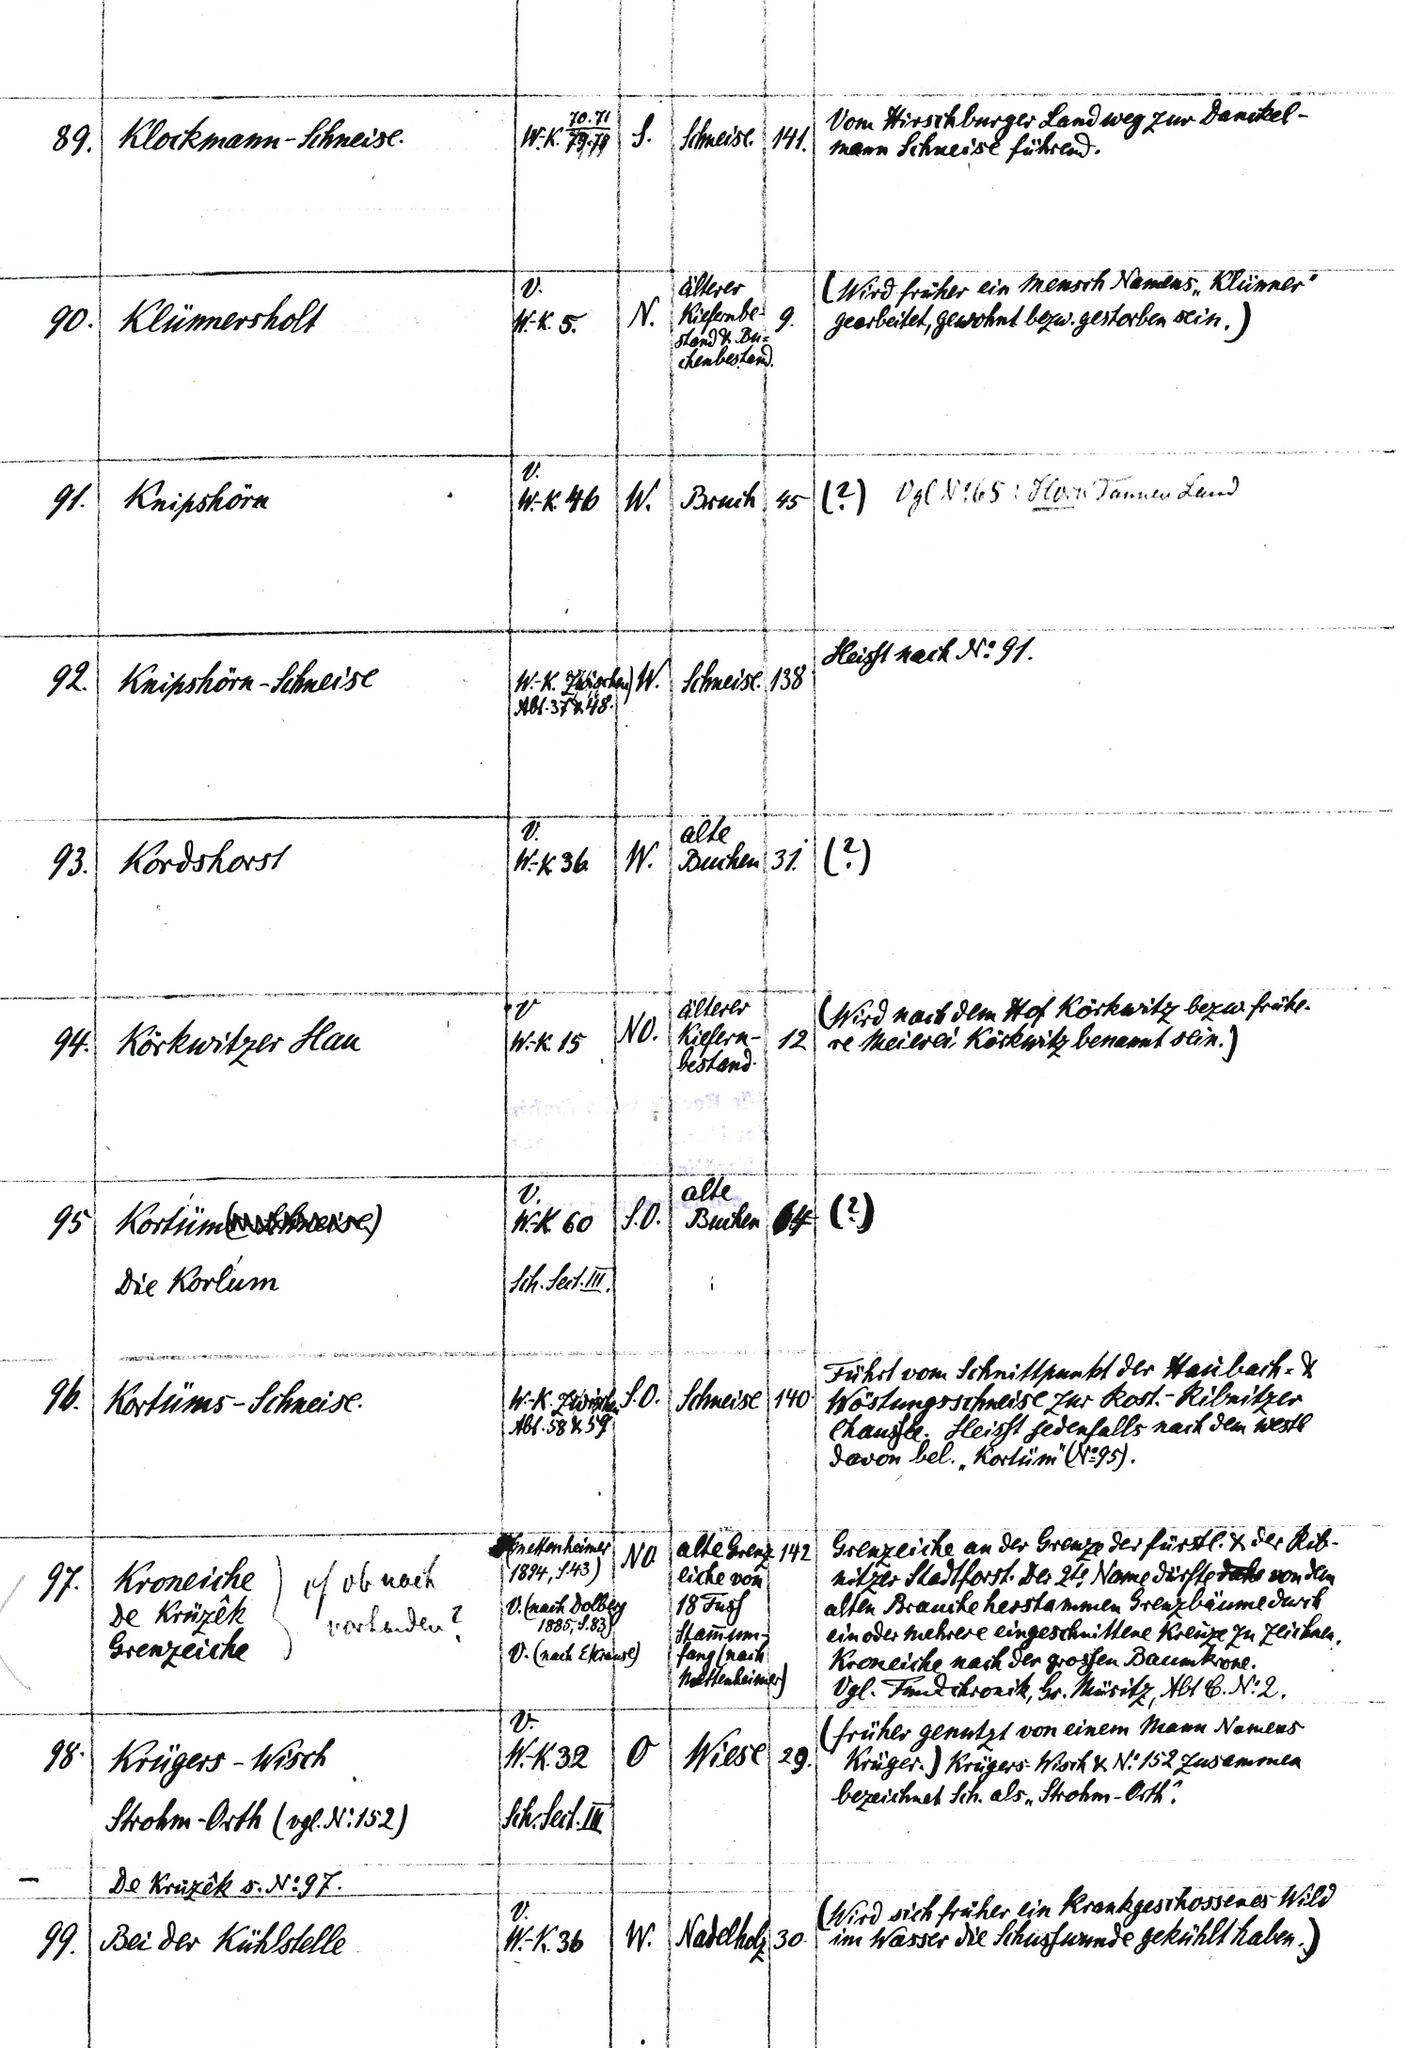 89. Klockmann-Schneise. W.-K. 70.71 / 79.78 S. Schneise. 141. Vom Hirschburger Landweg zur Danckel-
mann Schneise führend.
90. Klünnersholt V. W.-K. 5. N. älterer 9. (Wird früher ein Mensch Namens „Klünner“
Kiefernbe- gearbeitet, gewohnt bezw. gestorben sein.)
stand & Bu-
chenbestand.
91. Knipshörn V. W.-K. 46 W. Bruch 45 (?) Vgl No 65: Horn Tannen Land
92. Knipshörn-Schneise W.-K. Zwischen) W. Schneise. 138 Heisst nach No 91.
Abt. 37 & 48.
93. Kordshorst V. W.-K. 36. W. alte
Buchen 31. (?)
94. Körkwitzer Hau V W.-K. 15 NO. älterer 12 (Wird nach dem Hof Körkwitz bezw. frühe-
Kiefern- re Meierei Körkwitz benannt sein.)
bestand.
95 Kortüm( Schneise) V. W.-K. 60 S.O. alte
Buchen 64 (?)
Die Kortum Sch. Sect. III.
96. Kortüms-Schneise. W.-K. Zwischen S.O. Schneise 140. Führt vom Schnittpunkt der Haubach- &
Abt. 58 & 59 Wöstungsschneise zur Rost.-Ribnitzer
Chaussee. Heisst jedenfalls nach dem westl
davon bel. „Kortüm“ (No 95).
97. Kroneiche (Mettenheimer NO. alte Grenz 142 Grenzeiche an der Grenze der fürstl. & der Rib-
De Krüzêk 1894, S.43) eiche von nitzer Stadtforst. Der 2te Name dürfte von dem
Grenzeiche V. (nach Dolberg 18 Fuss alten Brauche herstammen Grenzbäume durch
ob noch 1885, S.83) Stammum- ein oder mehrere eingeschnittene Kreuze zu zeichnen.
vorhanden? V. (nach E Krause) fang (nach Kroneiche nach der grossen Baumkrone.
Mettenheimer) Vgl. Fundchronik, Gr. Müritz, Abt C. No 2.
98. Krügers-Wisch V. W.-K. 32 O Wiese 29. (früher genutzt von einem Mann Namens
Krüger.) Krügers-Wisch & No 152 zusammen
bezeichnet Sch. als „Strohm-Orth“.
Strohm-Orth (vgl. No 152) Sch. Sect. III
De Krüzêk s. No 97.
99. Bei der Kühlstelle V. W.-K. 36 W. Nadelholz 30. (Wird sich früher ein krankgeschossenes Wild
im Wasser die Schusswunde gekühlt haben.)